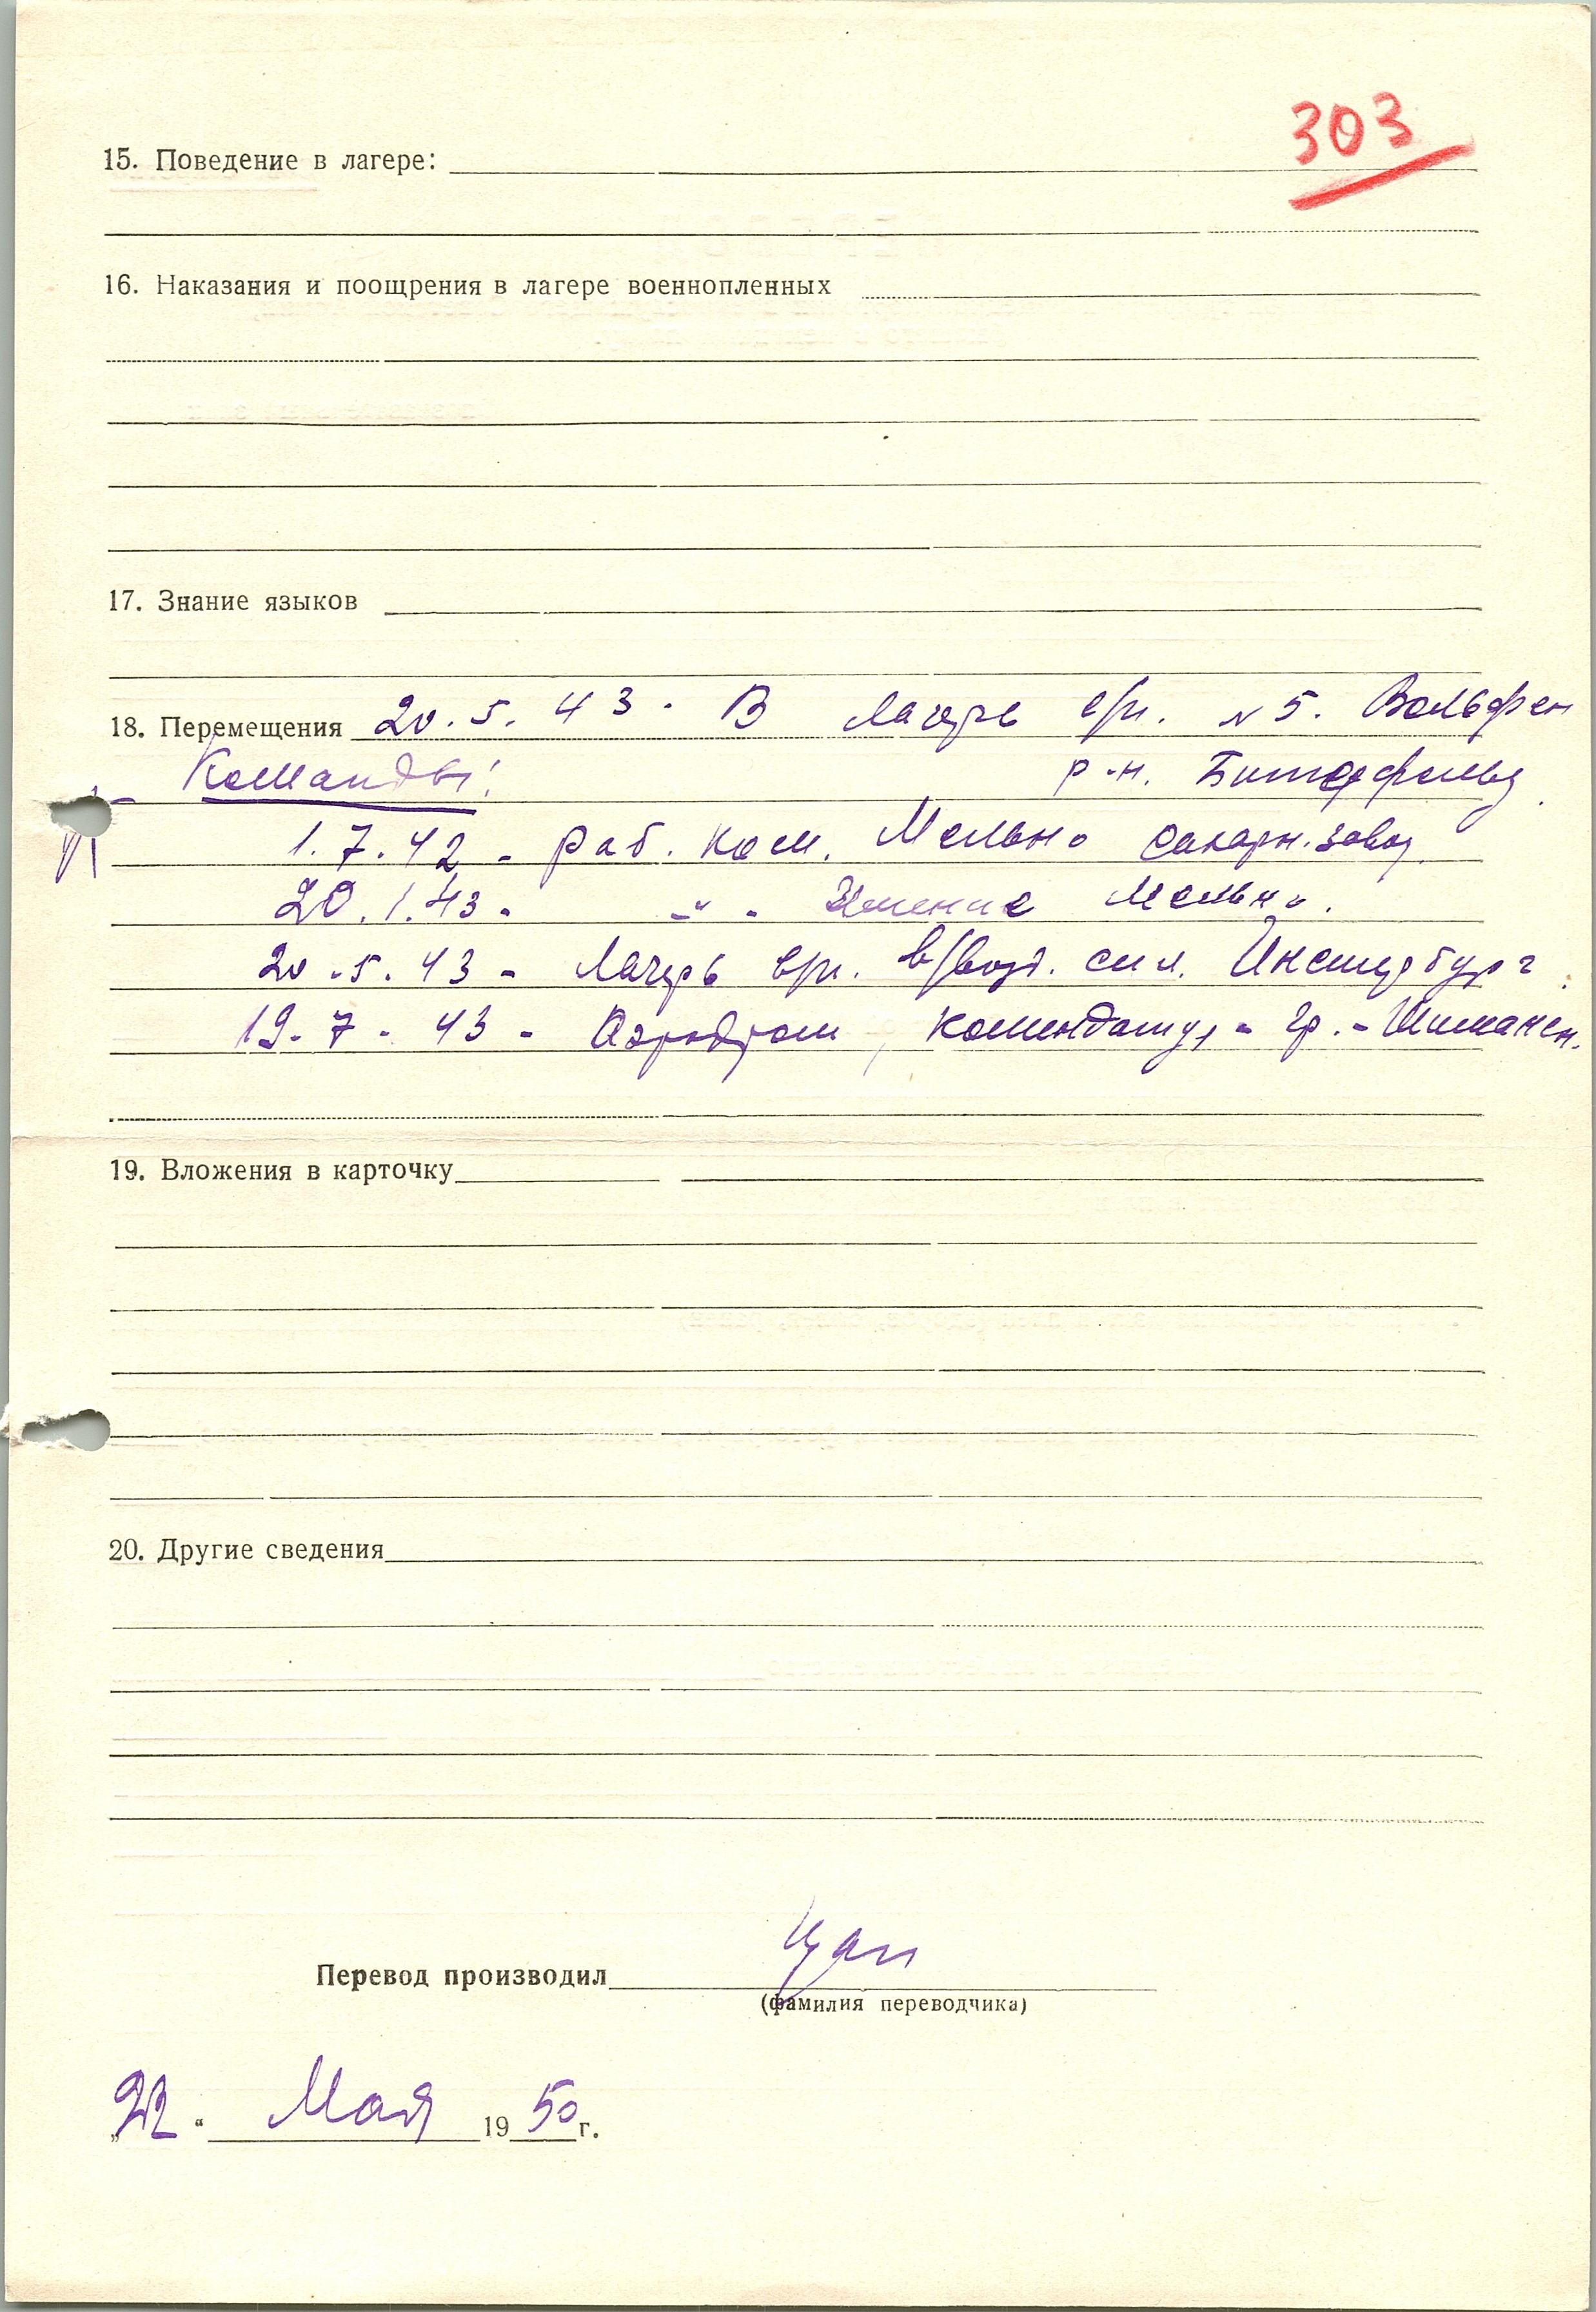 303
15. Поведение в лагере:
16. Наказания и поощрения в лагере военнопленных
17. Знание языков
18. Перемещения 20.5.43. В лагерь в/п. №5. Вольфен
Команды: р-н. Биттерфельд
1.7.42 - раб. ком. Мельно сахарн. завод.
20.1.43 - -"- Имение Мельно.
20.5.43 - Лагерь в/п. в/возд. сил. Инстербург
19.7.43 - Аэродром, комендатур - гр. -
19. Вложения в карточку
20. Другие сведения
Перевод производил
(фамилия переводчика)
„22“ Мая 1950 г.